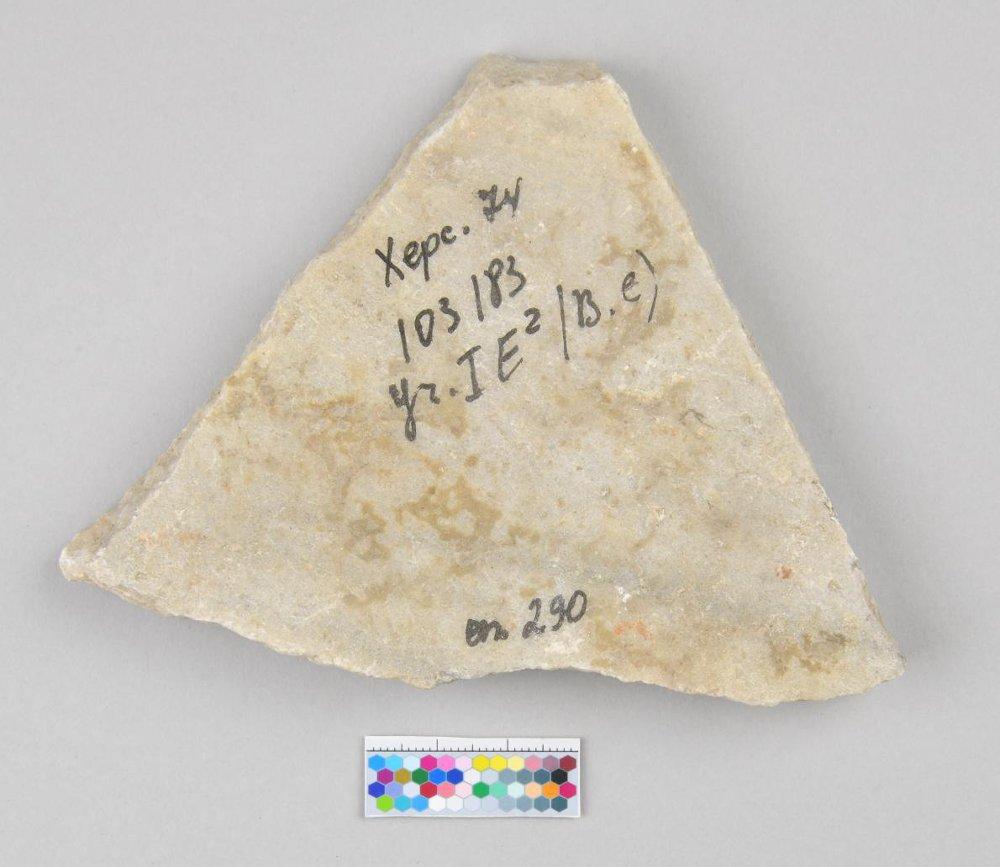 Херс. 74
103/83
уч. I E² (В. е)
оп. 290